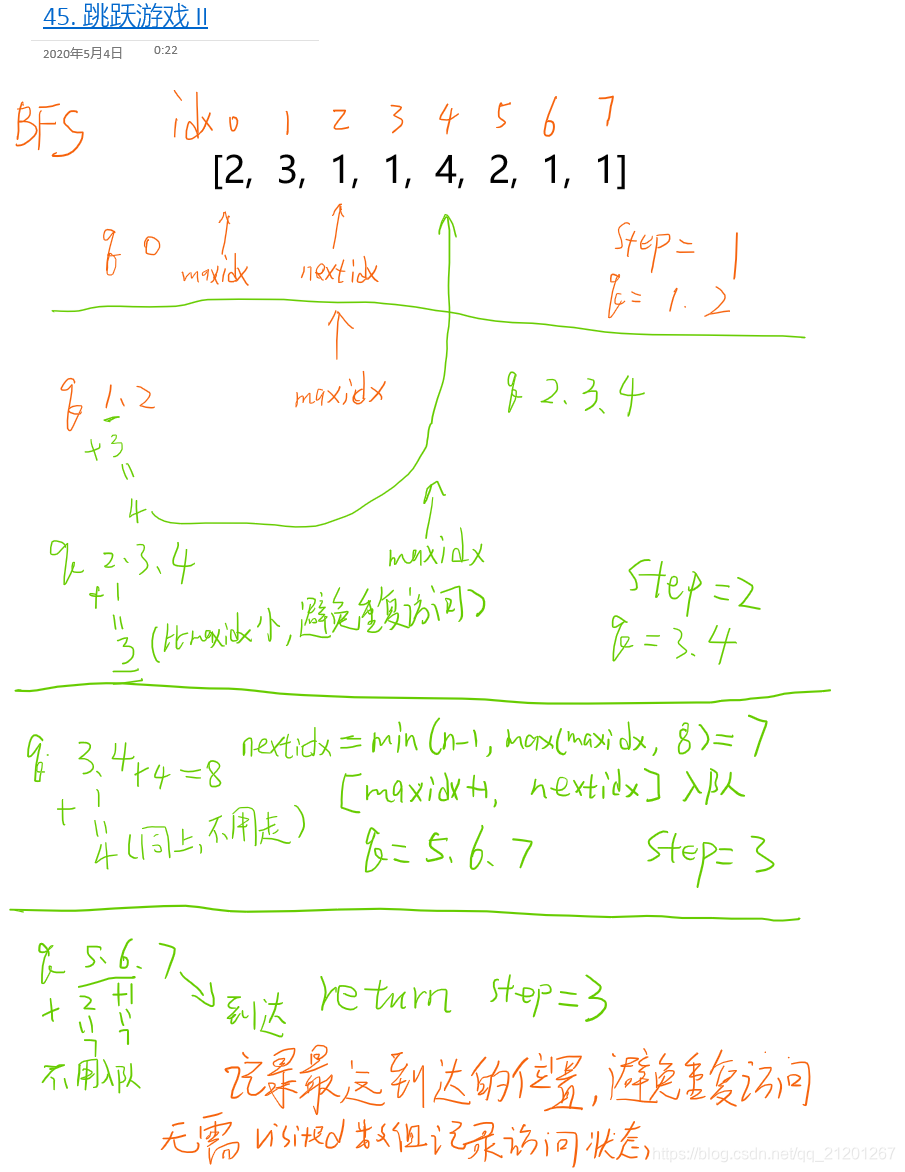 45. 跳跃游戏 II
2020年5月4日 0:22
BFS idx 0 1 2 3 4 5 6 7
[2, 3, 1, 1, 4, 2, 1, 1]
q 0 maxidx nextidx step = 1
q = 1. 2
q 1、2 maxidx q 2、3、4
+3
=
4
q 2、3、4 maxidx
+1 step = 2
=
3 (比maxidx小,避免重复访问) q = 3、4
q 3、4+4=8 nextidx = min(n-1, max(maxidx, 8) = 7
+1 [maxidx+1, nextidx] 入队
=
4 (同上,不用走) q = 5、6、7 step = 3
q 5、6、7
+2 +1 到达 return step=3
= =
7 7
不用入队
记录最远到达的位置,避免重复访问
无需visited数组记录访问状态、
https://blog.csdn.net/qq_21201267